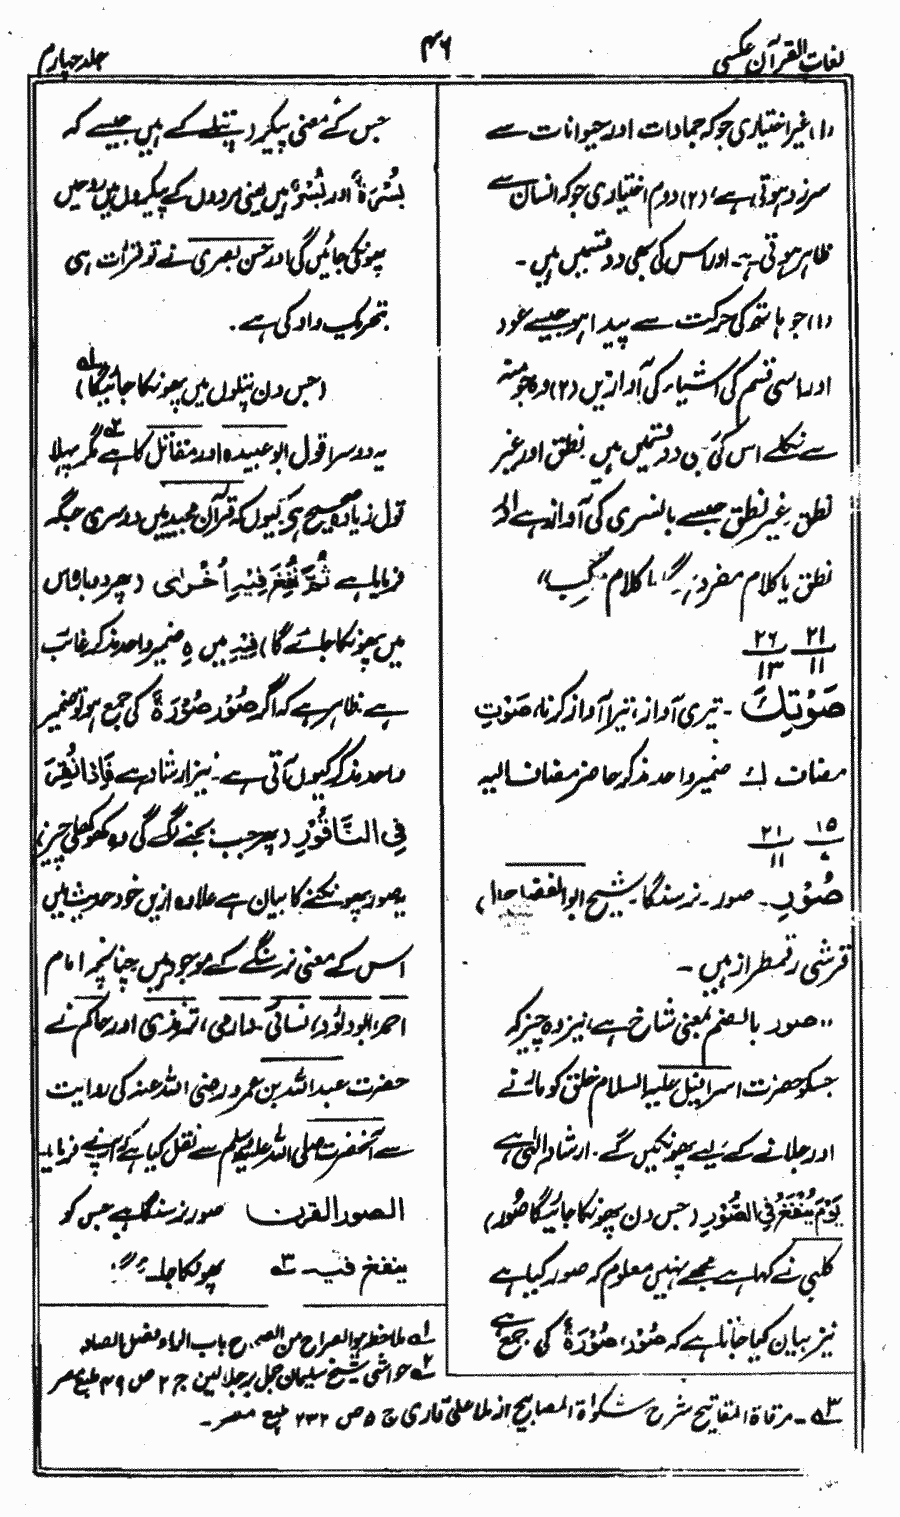 لغات القرآن عکسی
۴۶
جلد چہارم
(۱) غیر اختیاری جو کہ جمادات اور حیوانات سے
سرزد ہوتی ہے، (۲) دوم اختیاری جو کہ انسان سے
ظاہر ہوتی ہے۔ اور اس کی بھی دو قسمیں ہیں۔
(۱) جو ہاتھ کی حرکت سے پیدا ہو جیسے عود
اور اسی قسم کی اشیاء کی آوازیں (۲) وہ جو منہ
سے نکلے اس کی بھی دو قسمیں ہیں نطق اور غیر
نطق، غیر نطق جیسے بانسری کی آواز ہے اور
نطق یا کلام مفرد ہے یا کلام مرکب"
۲۱ ۲۶
۱۱ ۱۳
صَوْتِكَ۔ تیری آواز، تیرا آواز کرنا، صَوْتِ
مضاف لَكَ ضمیر واحد مذکر حاضر مضاف الیہ
۱۵ ۲۱
۷ ۱۱
صُوْرِ۔ صور۔ نرسنگا۔ شیخ ابو الفضل
قرشی رقمطراز ہیں۔
"صور بالضم بمعنی شاخ ہے، نیز وہ چیز کہ
جسکو حضرت اسرافیل علیہ السلام خلق کو مارنے
اور جلانے کے لیے پھونکیں گے۔ ارشاد الٰہی ہے
يَوْمَ يُنْفَخُ فِي الصُّوْرِ (جس دن پھونکا جائیگا صُور)
کلبی نے کہا ہے مجھے نہیں معلوم کہ صور کیا ہے
نیز بیان کیا جاتا ہے کہ صُوْر، صُوْرَةٌ کی جمع ہے
جس کے معنی پیکر (پتلے کے ہیں جیسے کہ
بُسْرَةٌ اور بُسْرٌ ہیں یعنی مردوں کے پیکروں میں روحیں
پھونکی جائیں گی اور حسن بصری نے تو قرأت ہی
بتحریک واو کی ہے۔
(جس دن پتلوں میں پھونکا جائیگا) لہ
یہ دوسرا قول ابو عبیدہ اور مقاتل کا ہے ۲ہ مگر پہلا
قول زیادہ صحیح ہے کیوں کہ قرآن مجید میں دوسری جگہ
فرمایا ہے ثُمَّ نُفِخَ فِيْهِ اُخْرٰى (پھر دوبارہ اس
میں پھونکا جائے گا) فِيْهِ میں ہٖ ضمیر واحد مذکر غائب
ہے ظاہر ہے کہ اگر صُوْر صُوْرَةٌ کی جمع ہو تو ضمیر
واحد مذکر کیوں آتی ہے۔ نیز ارشاد ہے فَاِذَا نُقِرَ
فِي النَّاقُوْرِ (پھر جب بجنے لگے گی وہ کھوکھلی چیز)
یہ صور پھونکنے کا بیان ہے علاوہ ازیں خود حدیث میں
اس کے معنی نرسنگے کے موجود ہیں چنانچہ امام
احمد، ابو داؤد، نسائی، دارمی، ترمذی اور حاکم نے
حضرت عبد اللہ بن عمرو رضی اللہ عنہ کی روایت
سے آنحضرت صلی اللہ علیہ وسلم سے نقل کیا ہے کہ آپ نے فرمایا۔
الصور القرن صور نرسنگا ہے جس کو
ينفخ فيه ۳ہ پھونکا جائے گا۔
۱ہ ملاحظہ ہو الصراح من الصحاح باب الراء فصل الصاد
۲ہ حواشی شیخ سلیمان جمل بر جلالین ج ۲ ص ۴۹ طبع مصر
۳ہ۔ مرقاۃ المفاتیح شرح مشکوٰۃ المصابیح از ملا علی قاری ج ۵ ص ۲۳۲ طبع مصر۔